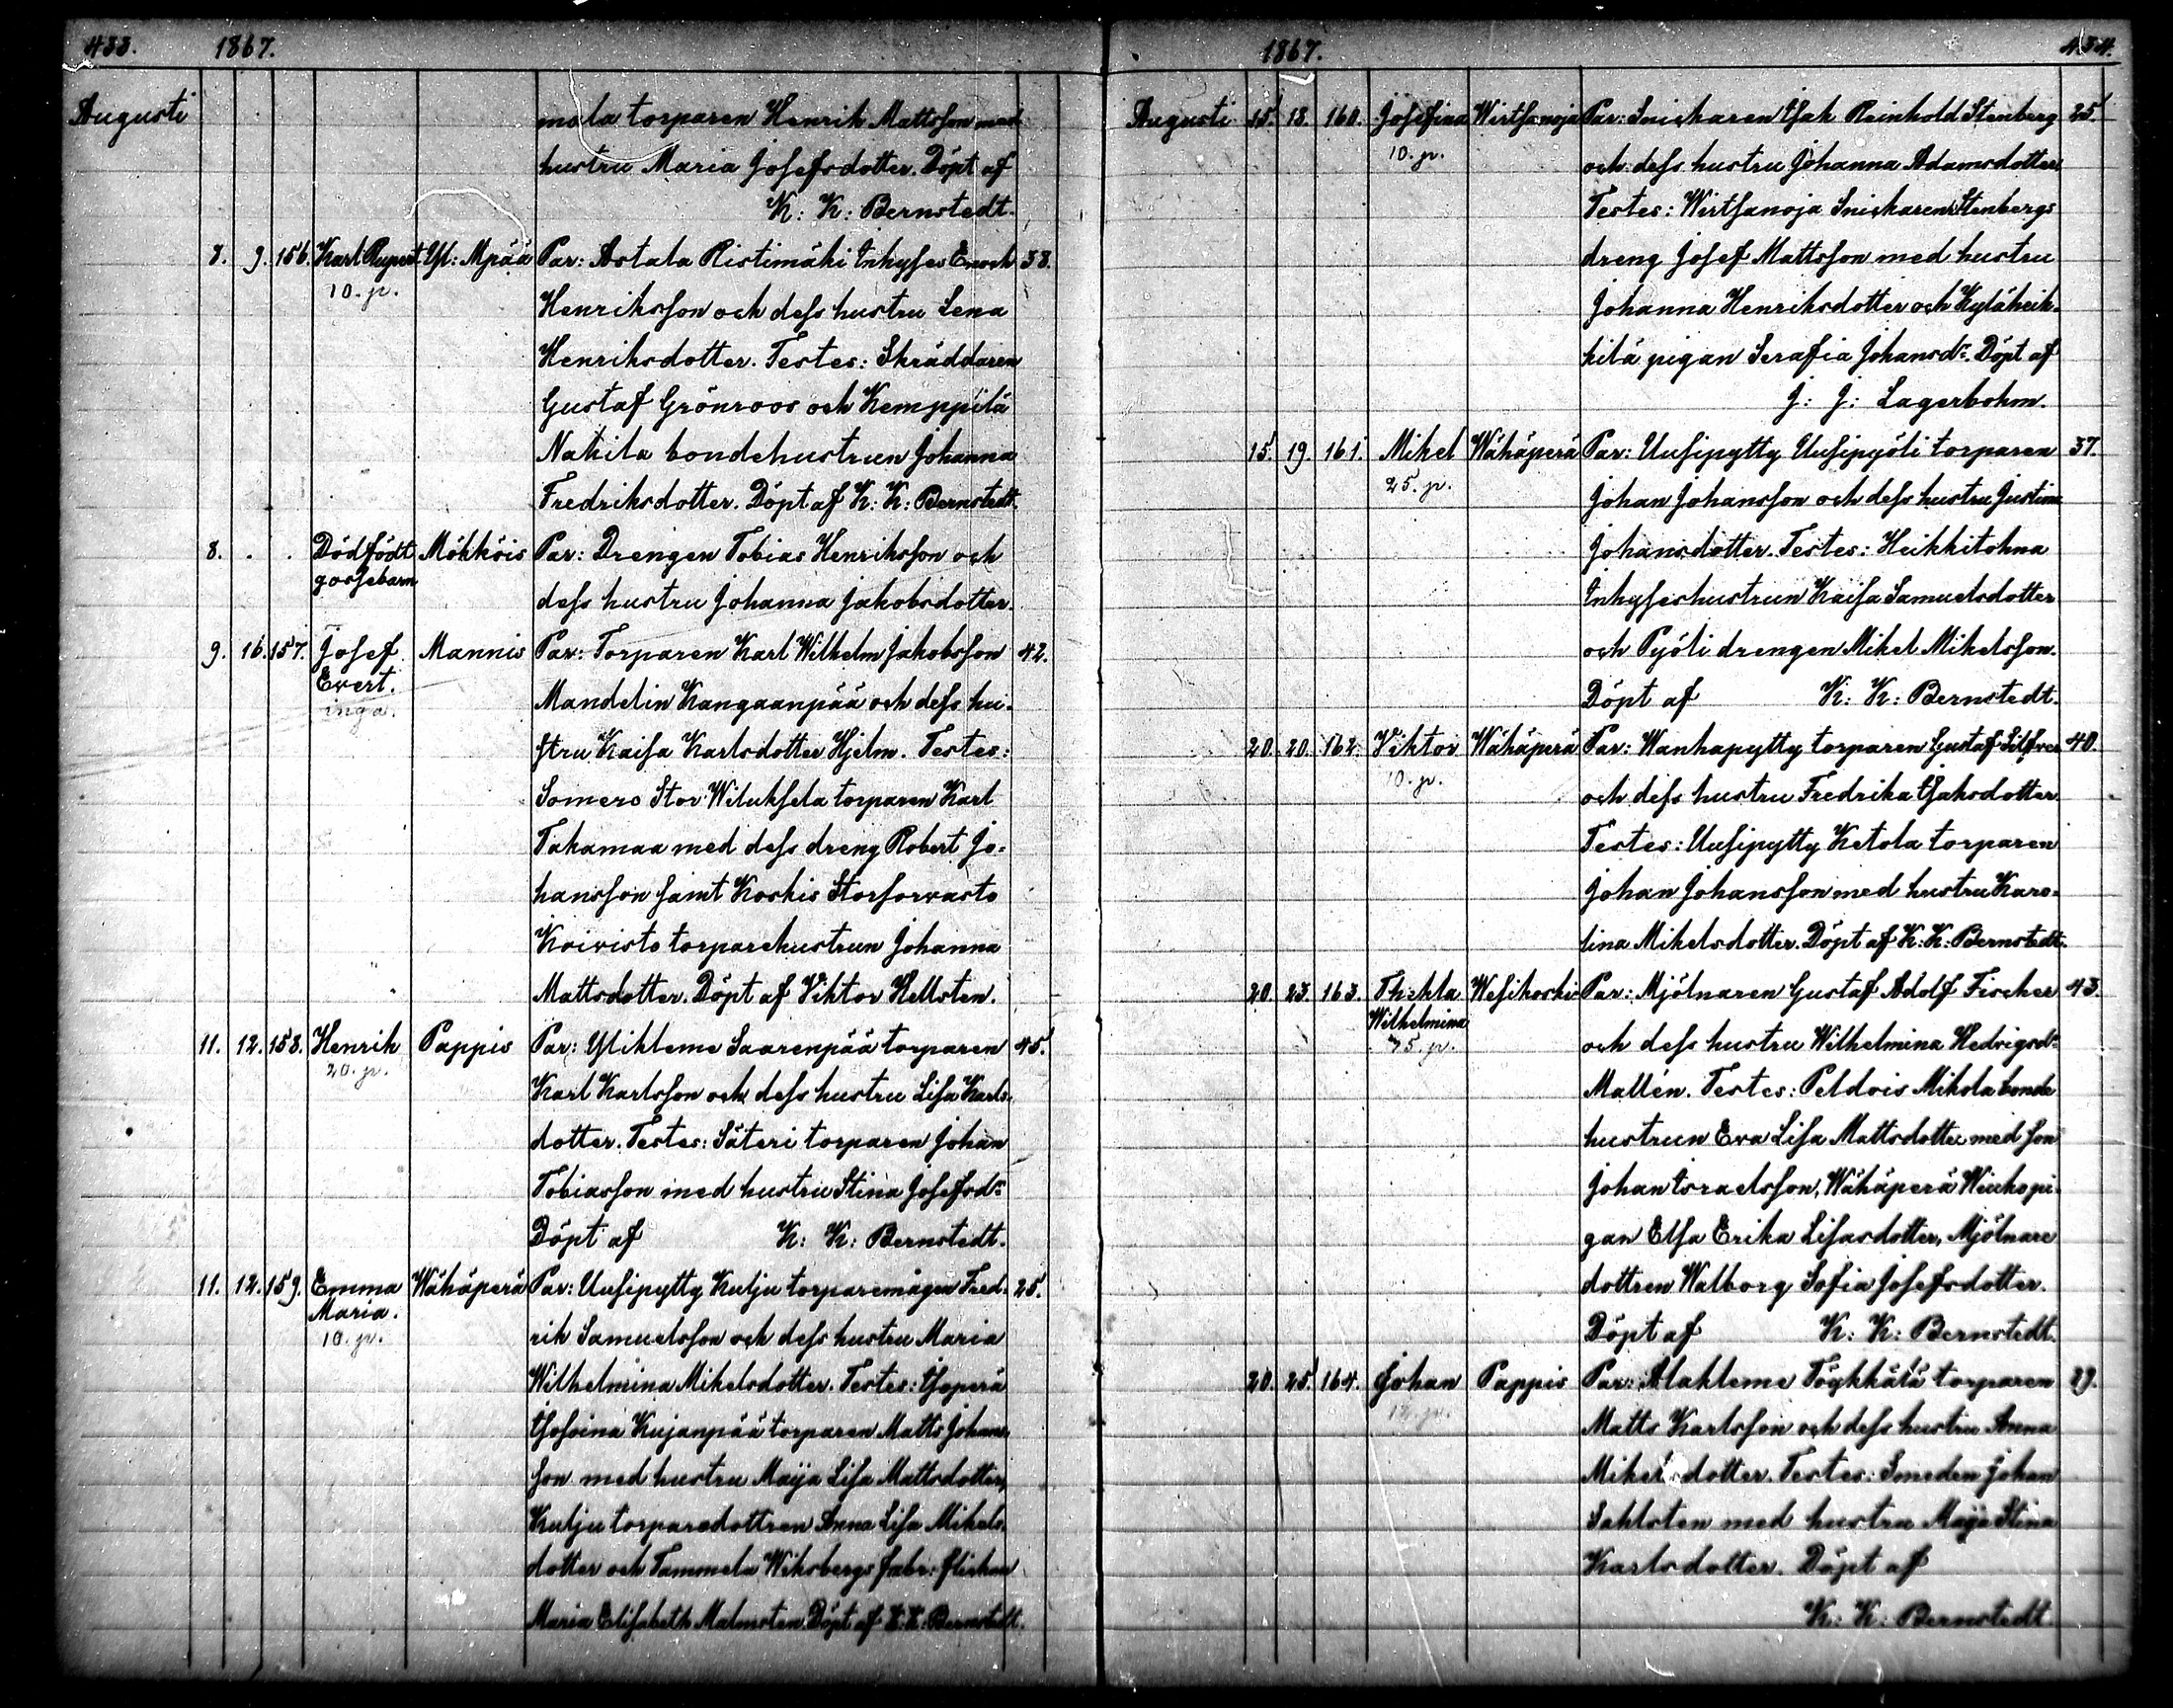 433. 1867.
Augusti
mola torparen Henrik Mattsson med
hustru Maria Josefsdotter. Döpt af
K: K: Bernstedt.
8. 9. 156. Karl Rupert Yl: Mpää Par: Astala Ristimäki Inhyses Enoch 38.
10. p. Henriksson och dess hustru Lena
Henriksdotter. Testes: Skräddaren
Gustaf Grönroos och Kemppilä
Nakila bondehustrun Johanna
Fredriksdotter. Döpt af K: K: Bernstedt.
8. . . Dödfödt Mökköis Par: Drengen Tobias Henriksson och
gossebarn dess hustru Johanna Jakobsdotter.
9. 16. 157. Josef Mannis Par: Torparen Karl Wilhelm Jakobsson 42.
Evert. Mandelin Kangaanpää och dess hu-
inga. stru Kaisa Karlsdotter Hjelm. Testes:
Somero Stor Wiluksela torparen Karl
Takamaa med dess dreng Robert Jo-
hansson samt Koskis Storsorvasto
Koivisto torparehustrun Johanna
Mattsdotter. Döpt af Viktor Hellsten.
11. 12. 158. Henrik Pappis Par: Ylikleme Saarenpää torparen 45.
20. p. Karl Karlsson och dess hustru Lisa Karls-
dotter. Testes: Säteri torparen Johan
Tobiasson med hustru Stina Josefsdr
Döpt af K: K: Bernstedt.
11. 12. 159. Emma Wähäperä Par: Uusipytty Kulju torparemågen Fred- 25.
Maria. rik Samuelsson och dess hustru Maria
10. p. Wilhelmina Mikelsdotter. Testes: Isoperä
Isosoina Kujanpää torparen Matts Johans-
son med hustru Maija Lisa Mattsdotter,
Kulju torparedottren Anna Lisa Mikels-
dotter och Tammela Wiksbergs fabr: flickan
Maria Elisabeth Malmsten. Döpt af K: K: Bernstedt.
1867. 434.
Augusti 15. 18. 160. Josefina Wirtsanoja Par: Snickaren Isak Reinhold Stenberg 25.
10. p. och dess hustru Johanna Adamsdotter.
Testes: Wirtsanoja Snickaren Stenbergs
dreng Josef Mattsson med hustru
Johanna Henriksdotter och Kyläheik-
kilä pigan Serafia Johansdr. Döpt af
J: J: Lagerbohm.
15. 19. 161. Mikel Wähäperä Par: Uusipytty Uusipyöli torparen 37.
25. p. Johan Johansson och dess hustru Justina
Johansdotter. Testes: Heikkitohna
Inhyseshustrun Kaisa Samuelsdotter
och Pyöli drengen Mikel Mikelsson.
Döpt af K: K: Bernstedt.
20. 20. 162. Viktor Wähäperä Par: Wanhapytty torparen Gustaf Silfver 40.
10. p. och dess hustru Fredrika Isaksdotter
Testes: Uusipytty Ketola torparen
Johan Johansson med hustru Karo-
lina Mikelsdotter. Döpt af K: K: Bernstedt.
20. 23. 163. Thekla Wesikoski Par: Mjölnaren Gustaf Adolf Fischer 43.
Wilhelmina och dess hustru Wilhelmina Hedvigsdr
75. p. Mallén. Testes: Peldois Mikola bonde
hustrun Eva Lisa Mattsdotter med son
Johan Israelsson, Wähäperä Wiuhs pi-
gan Elsa Erika Lisasdotter, Mjölnare
dottren Walborg Sofia Josefsdotter.
Döpt af K: K: Bernstedt.
20. 25. 164. Johan Pappis Par: Alakleme Töykkälä torparen 29.
Matts Karlsson och dess hustru Anna
Mikelsdotter. Testes: Smeden Johan
Sahlsten med hustru Maija Stina
Karlsdotter. Döpt af
K: K: Bernstedt.